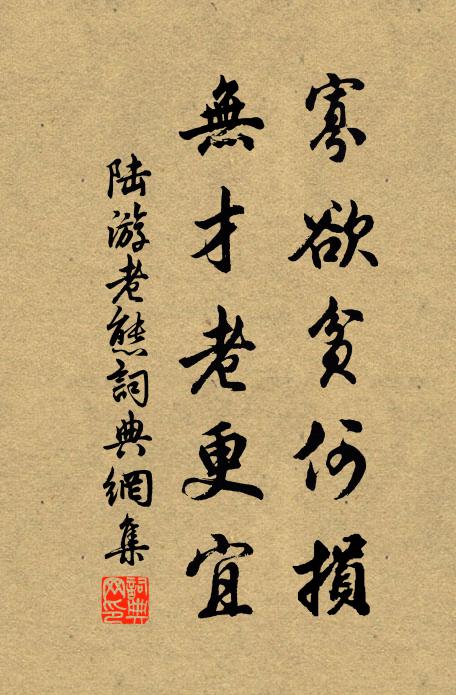 寡欲貧何損
無才老更宜
陸游老態詞典網集
詞典
网印